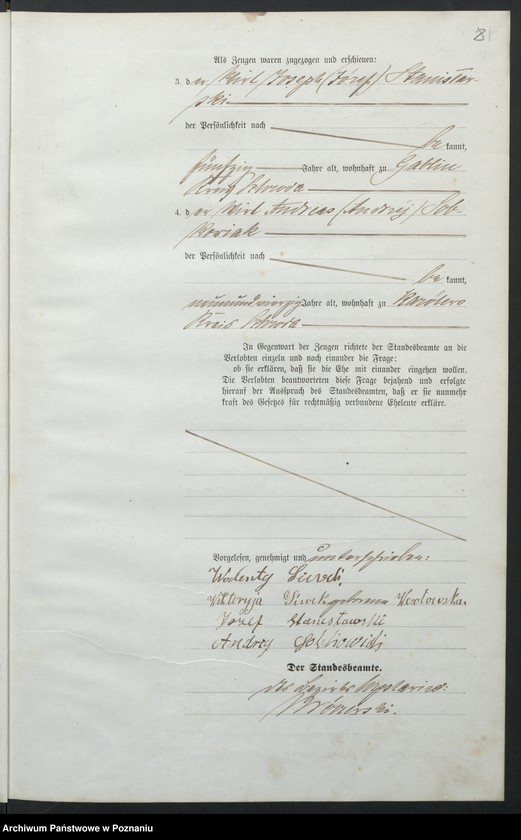 81
Als Zeugen waren zugezogen und erschienen:
3. der Wirt Joseph (Józef) Stanisław-
ski
der Persönlichkeit nach
bekannt,
fünfzig Jahre alt, wohnhaft zu
Kreis
4. der Wirt Andreas (Andrzej) Sob-
kowiak
der Persönlichkeit nach
bekannt,
neunundvierzig Jahre alt, wohnhaft zu
Kreis
In Gegenwart der Zeugen richtete der Standesbeamte an die
Verlobten einzeln und nach einander die Frage:
ob sie erklären, daß sie die Ehe mit einander eingehen wollen.
Die Verlobten beantworteten diese Frage bejahend und erfolgte
hierauf der Ausspruch des Standesbeamten, daß er sie nunmehr
kraft des Gesetzes für rechtmäßig verbundene Eheleute erkläre.
Vorgelesen, genehmigt und unterschrieben:
Wiktoryja geborene
Józef Stanisławski
Andrzej
Der Standesbeamte.
Archiwum Państwowe w Poznaniu